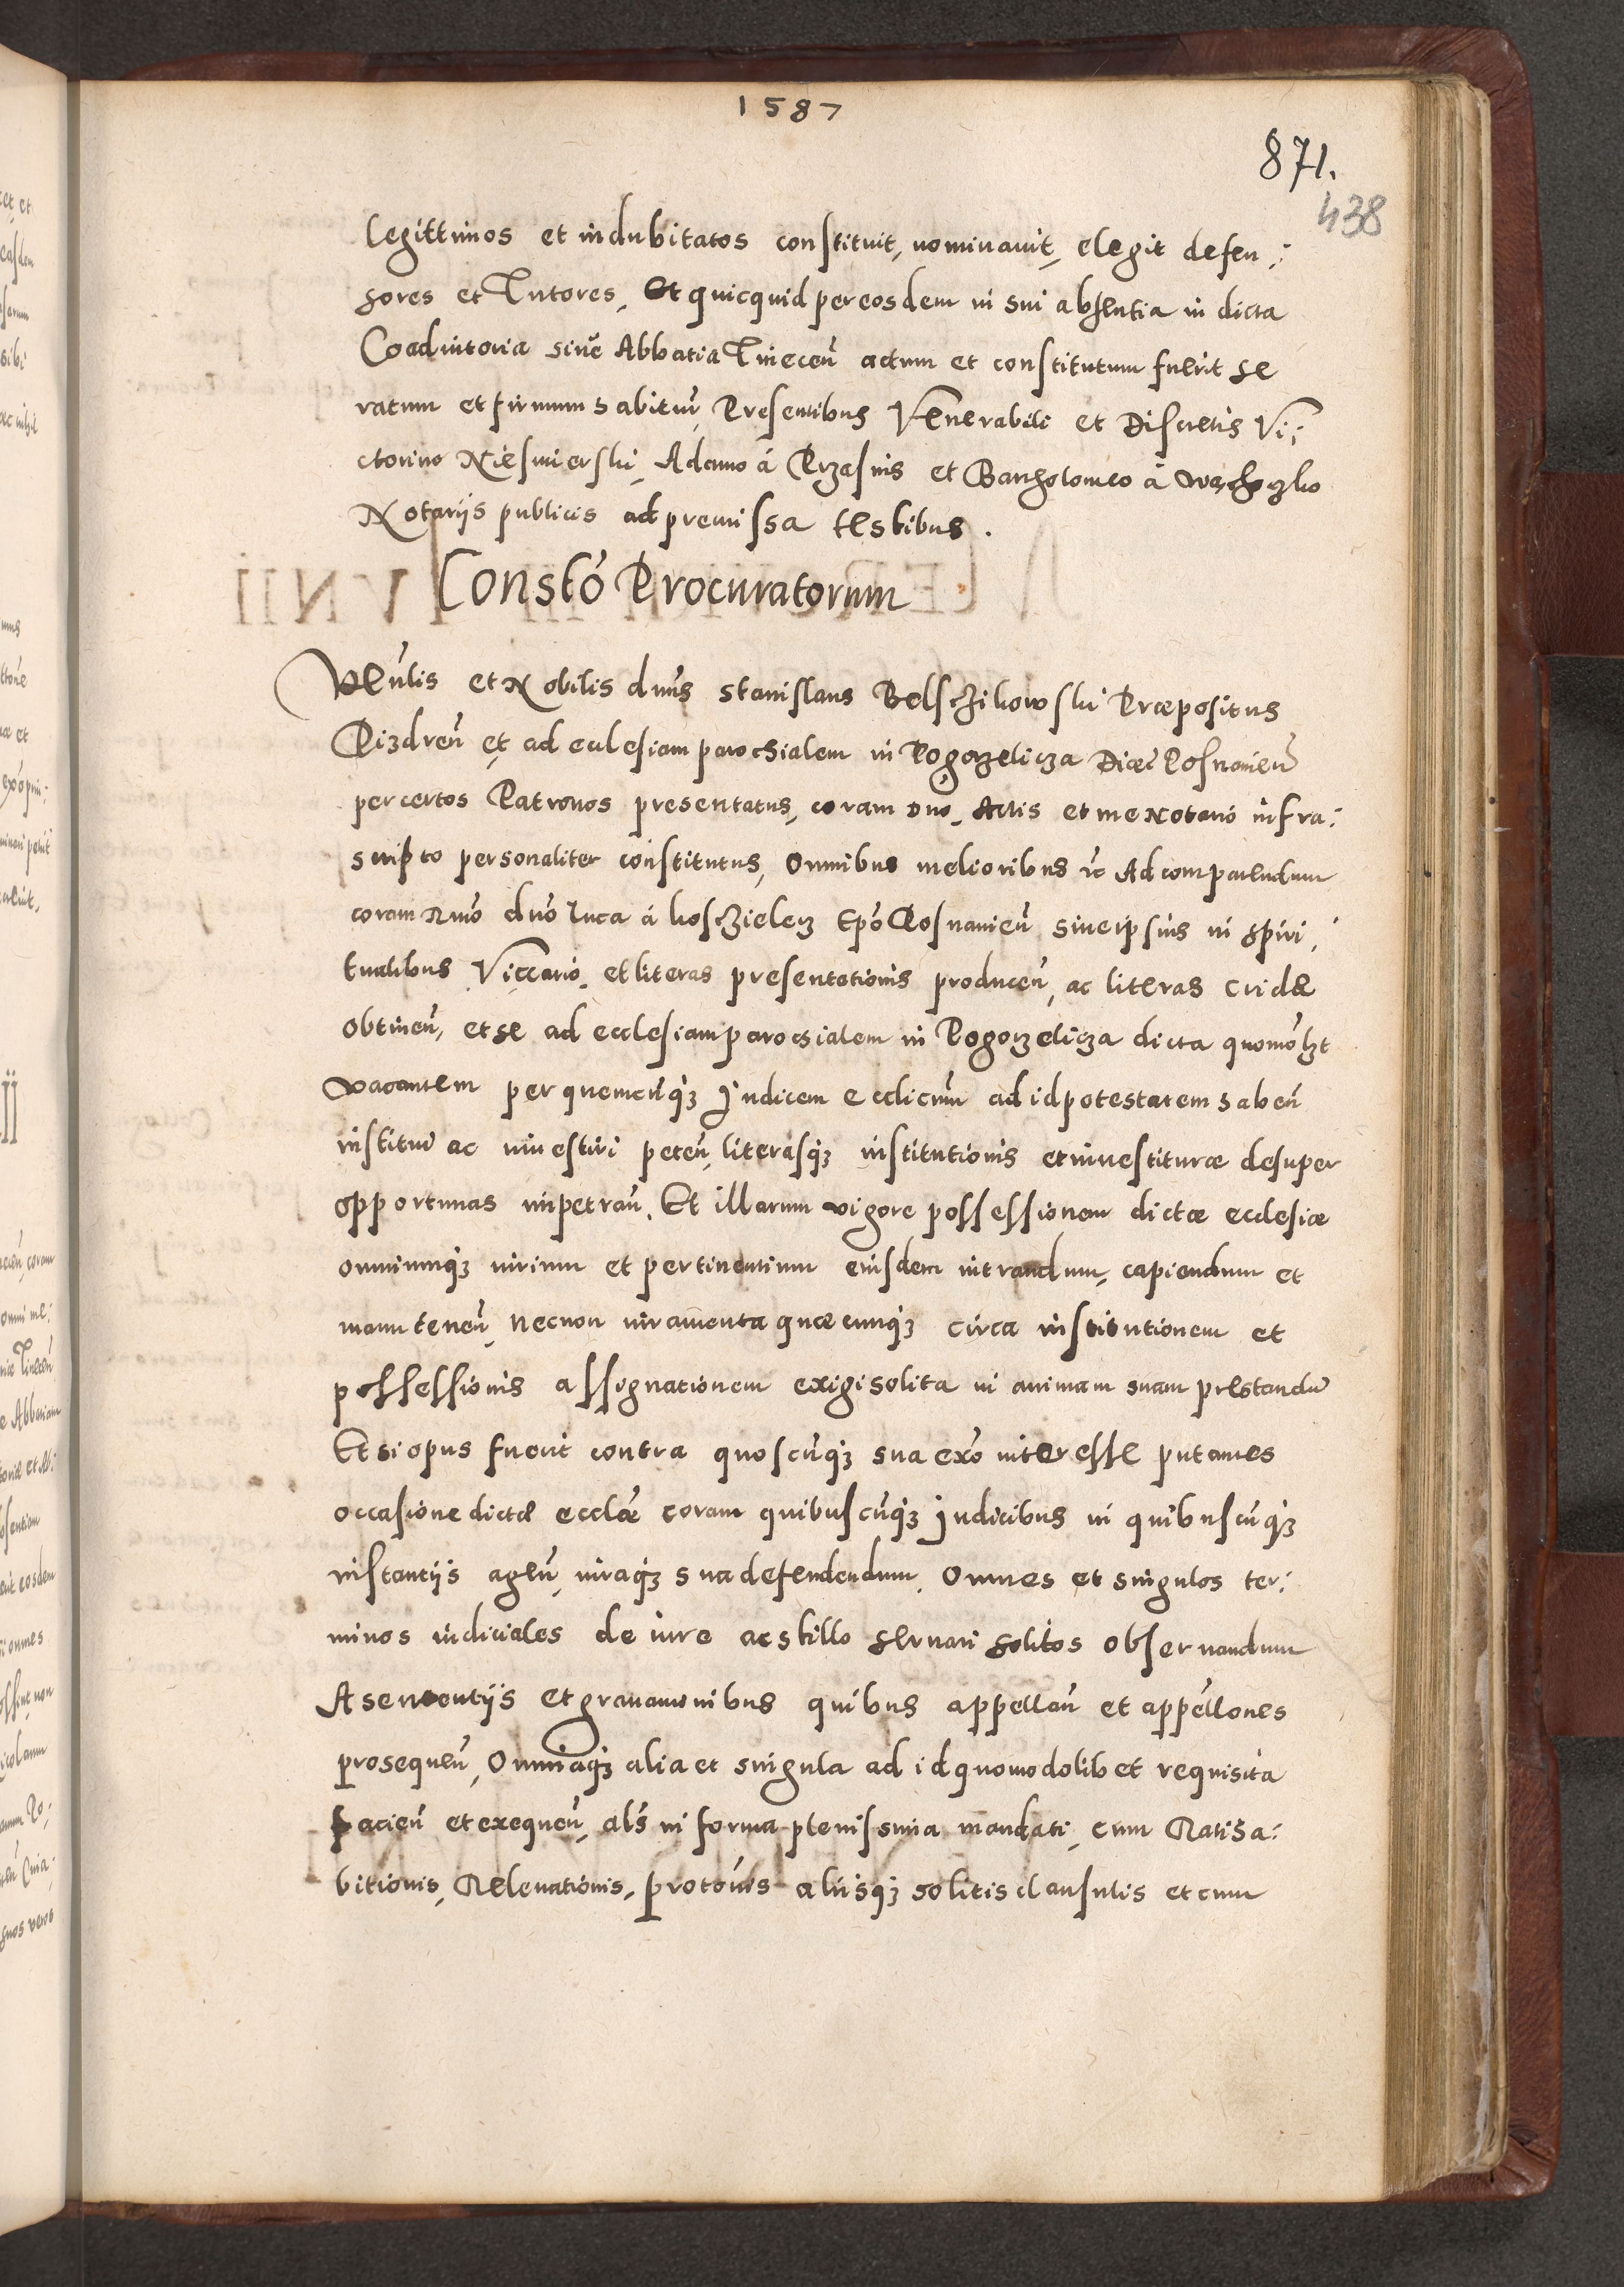 1587
871.
438
legittimos et indubitatos constituit, nominauit, elegit defen:
sores et Tutores, Et quicquid per eosdem in sui absentia in dicta
Coadiutoria siue Abbatia Tinecen̄ actum et constitutum fuerit se
ratum et firmum habitur̄, Presentibus Venerabili et Discretis Vi:
ctorino Niesmierski, Adamo á Przasnis et Bartholomeo á
Notarijs publicis ad premissa testibus.
Constó Procuratorum
Venlis et Nobilis dnūs Stanislaus Belschikowski Præpositus
Pizdren̄ et ad ecclesiam parochialem in Pogorzelicza Dioec̄ Posnanien̄
per certos Patronos presentatus, coram dno, Actis et me Notario infra:
scripto personaliter constitutus, Omnibus melioribus rc̄ Ad comparendum
coram Rmo dno Luca á Kosczielecz Epō Posnanien̄ siue ipsius in spiri:
tualibus Viccario, et literas presentationis producen̄, ac literas cridæ
obtinen̄, et se ad ecclesiam parochialem in Pogorzelicza dicta quomolʒt
vacantem per quemcunqʒ Judicem ecclicum ad id potestatem haben̄
institui ac inuestiri peten̄, literasqʒ institutionis et inuestituræ desuper
opportunas impetran̄. Et illarum vigore possessionem dictæ ecclesiæ
omniumqʒ iurium et pertinentium eiusdem intrandum, capiendum et
manutenen̄, necnon iuramenta quæcunqʒ circa institutionem et
possessionis assignationem exigi solita in animam suam prestandū
Et si opus fuerit contra quoscunqʒ sua exō interesse putantes
occasione dictæ ecclæ coram quibuscunqʒ Judicibus in quibuscunqʒ
instantijs agen̄, iuraqʒ sua defendendum, Omnes et singulos ter:
minos iudiciales de iure ac stillo seruari solitos obseruandum
A sententijs et grauaminibus quibus appellan̄ et appellones
prosequen̄, Omniaqʒ alia et singula ad id quomodolibet requisita
facien̄ et exequen̄, als in forma plenissima mandati, cum Ratiha:
bitionis, Releuationis, protonis alijsqʒ solitis clausulis et cum